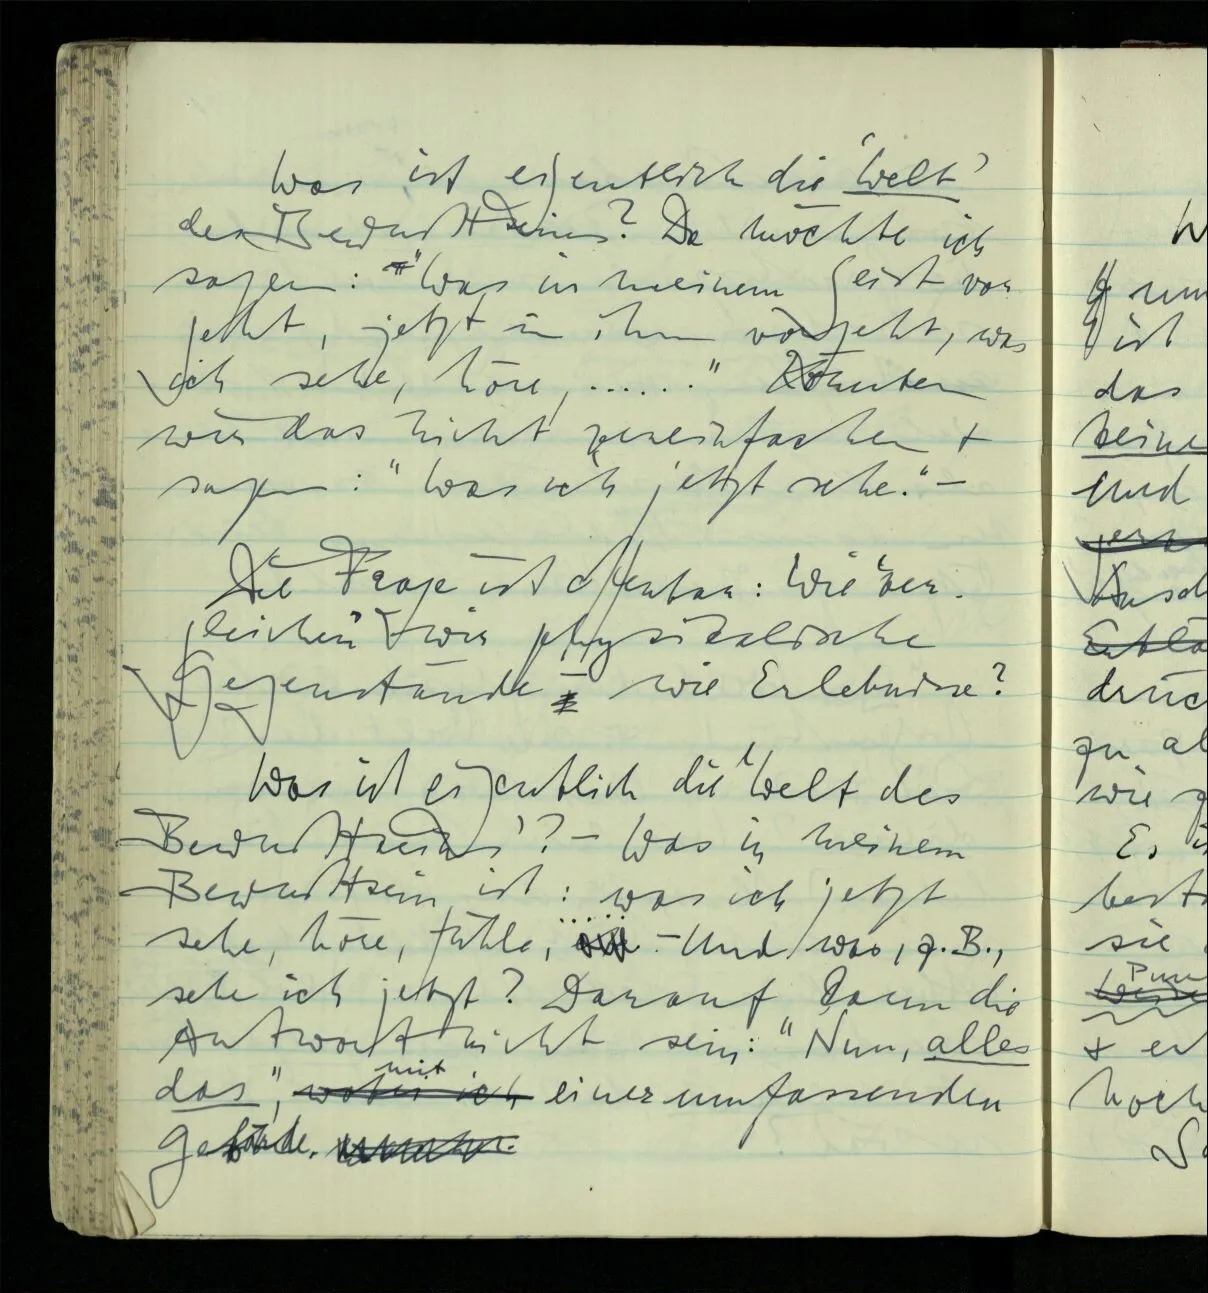 Was ist eigentlich die ‘Welt’
des Bewußtseins? Da möchte ich
sagen: “Was in meinem Geist vor
geht, jetzt in ihm vorgeht, was
ich sehe, höre, ......” Könnten
wir das nicht vereinfachen +
sagen: “Was ich jetzt sehe.” –
Die Frage ist offenbar: Wie ‘ver-
gleichen’ wir physikalische
Gegenstände – wie Erlebnisse?
Was ist eigentlich die ‘Welt des
Bewußtseins’? – Was in meinem
Bewußtsein ist: was ich jetzt
sehe, höre, fühle, ..... – Und was, z.B.,
sehe ich jetzt? Darauf kann die
Antwort nicht sein: “Nun, alles
das”, wobei ich mit einer umfassenden
Gebärde.
W
ist
das
keine
und
zu al
wie
Es
sie
+ er
noch